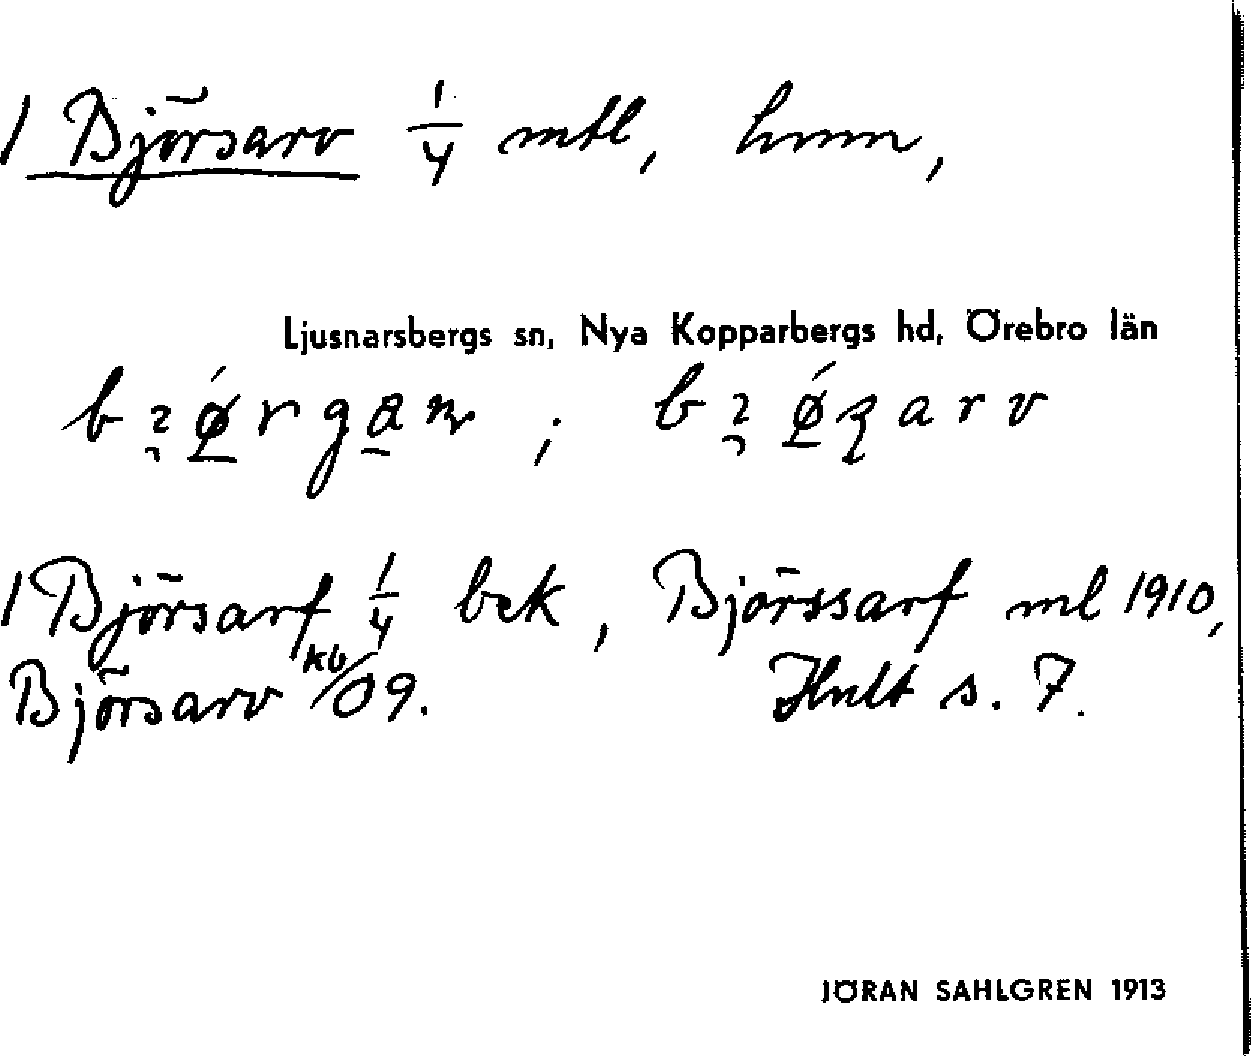 1 Björsarv 1/4 mtl, hmm,
Ljusnarsbergs sn, Nya Kopparbergs hd, Örebro län
1 Björsarf 1/4 bek, Björssarf ml 1910,
Björsarv kb/09. Hult s. 7.
JÖRAN SAHLGREN 1913